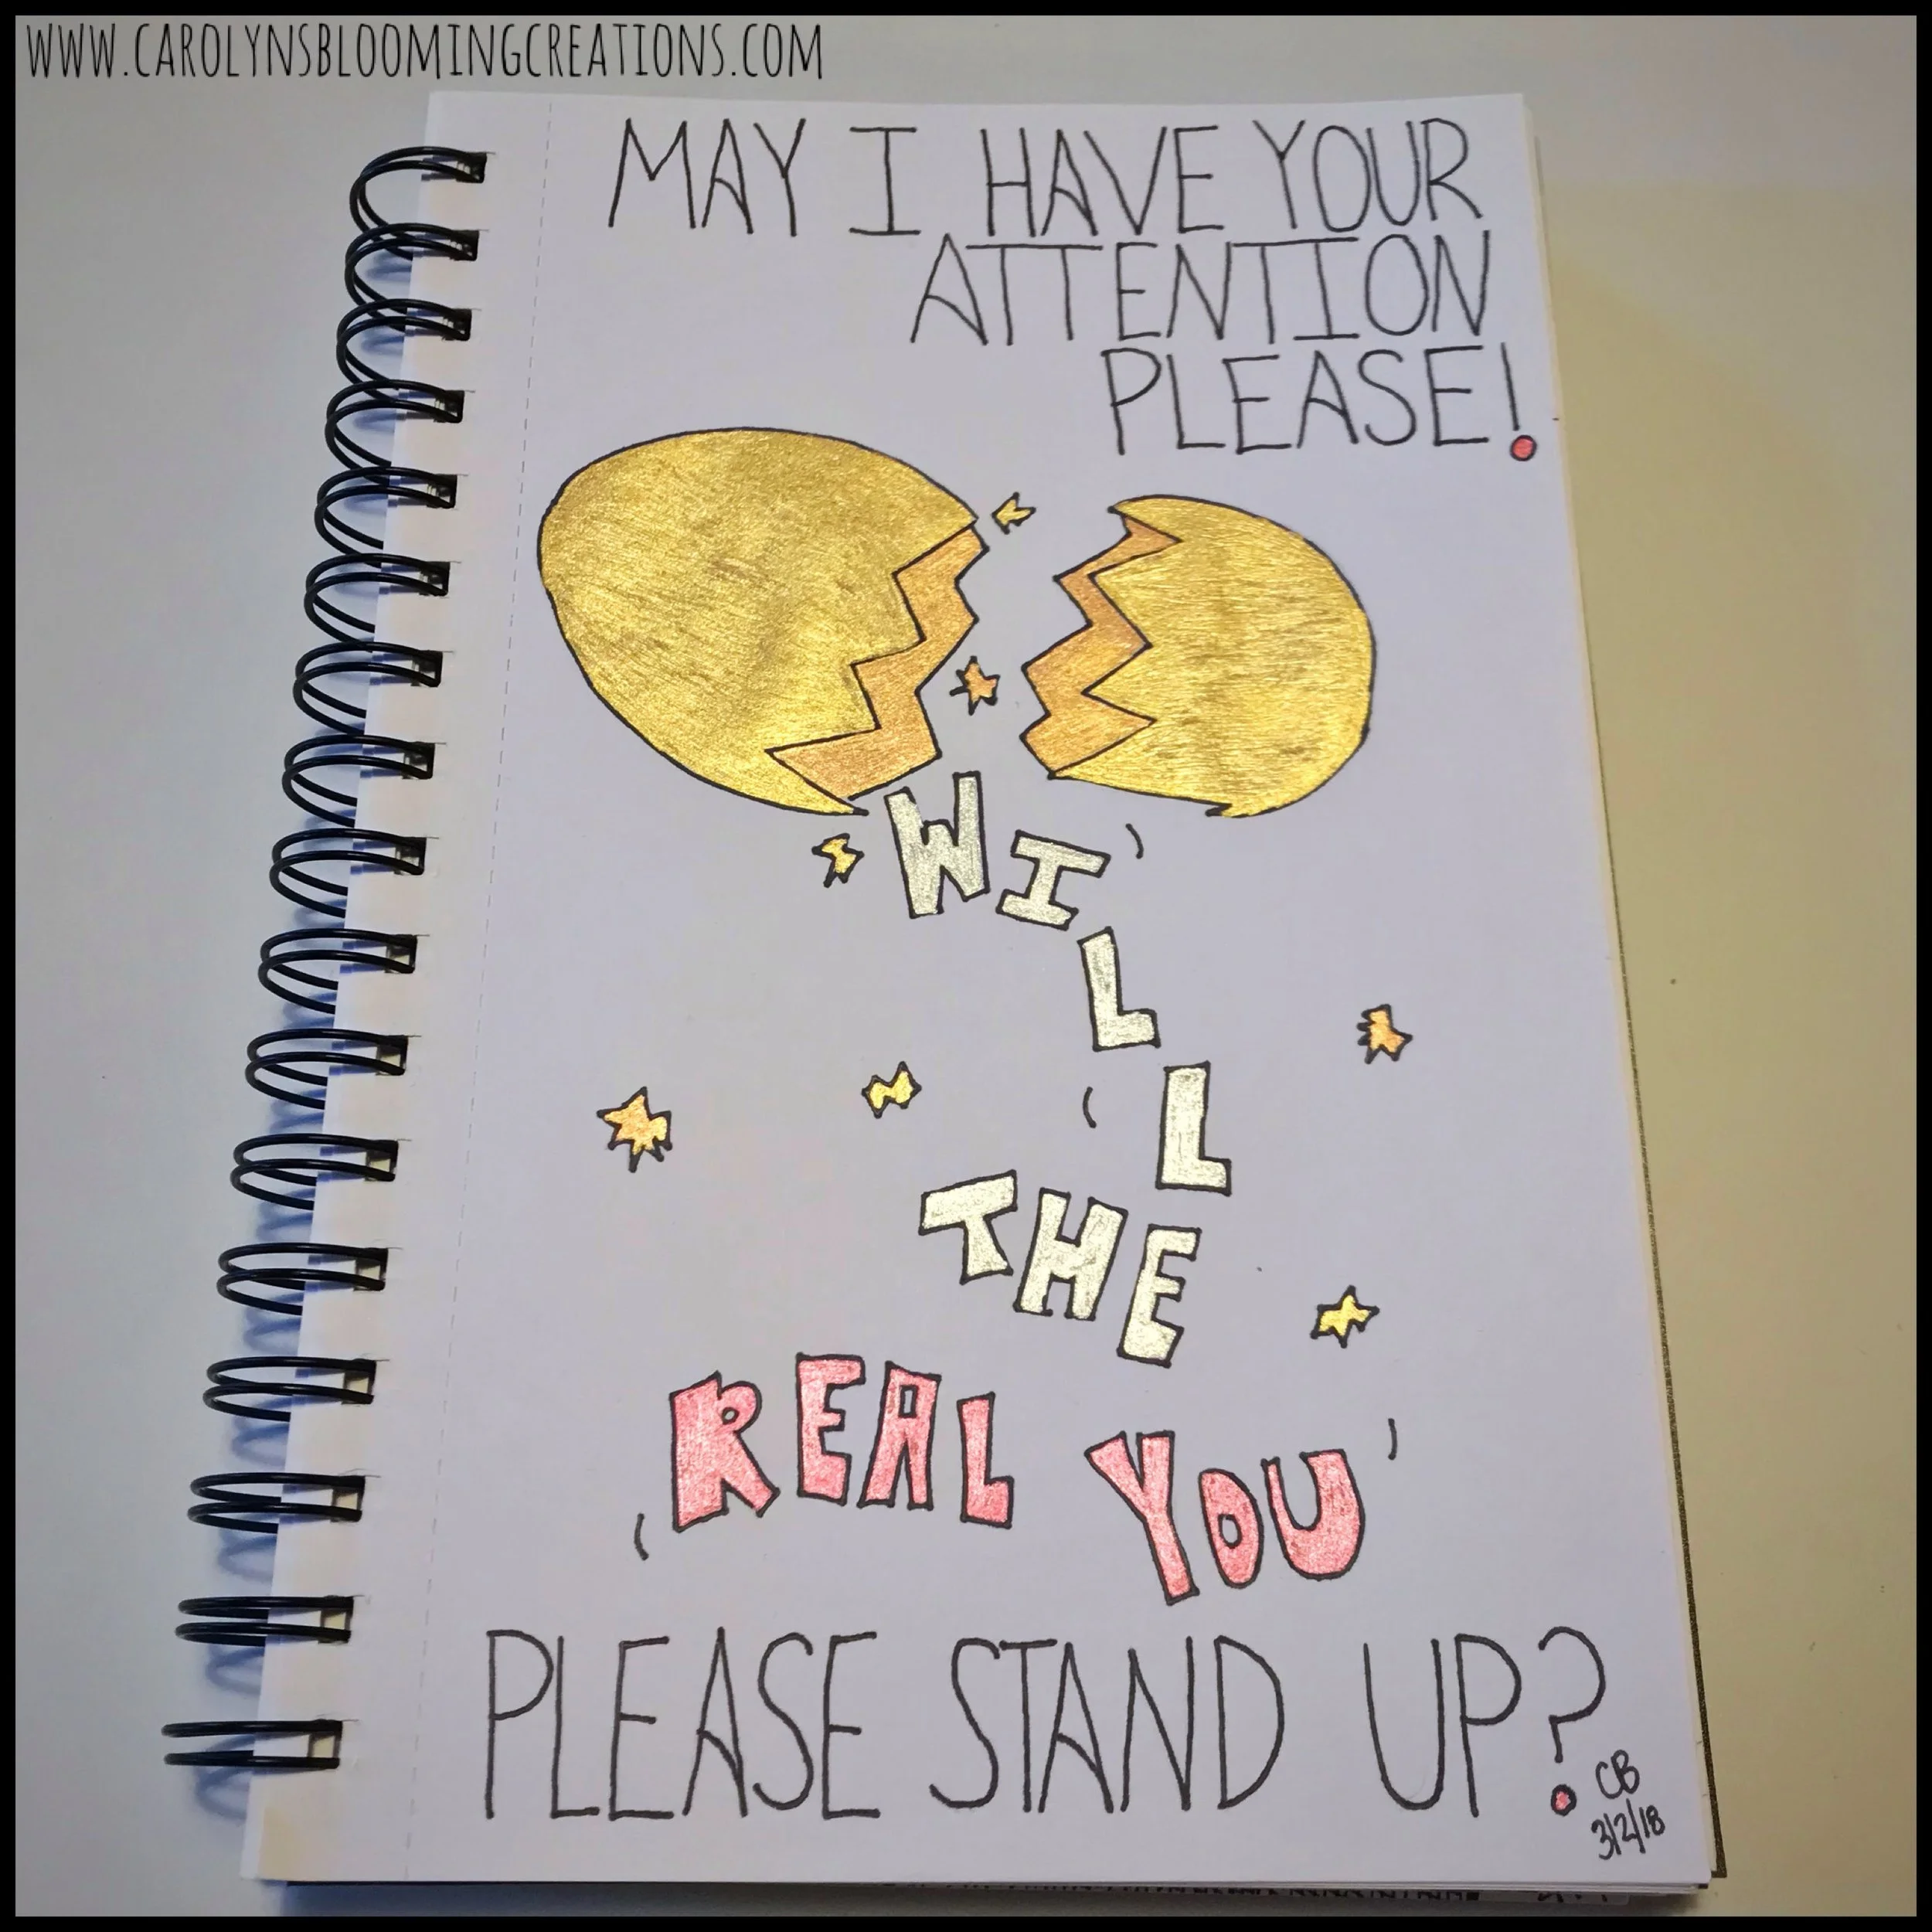 WWW.CAROLYNSBLOOMINGCREATIONS.COM
MAY I HAVE YOUR
ATTENTION
PLEASE!
WILL
THE
REAL YOU
PLEASE STAND UP?
CB
3/2/18